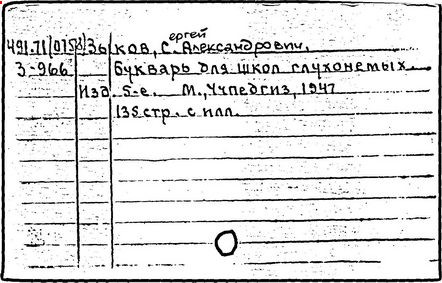 491.71(075) Зыков, Сергей Александрович.
3-966 Букварь для школ глухонемых.
Изд. 5-е. М., Учпедгиз, 1947
135 стр. с илл.